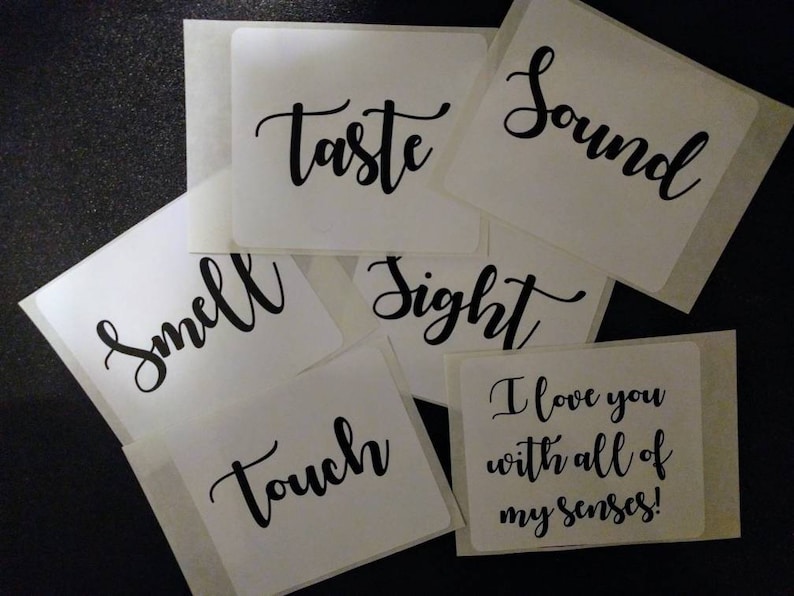 Taste
Sound
Smell
Sight
Touch
I love you
with all of
my senses!